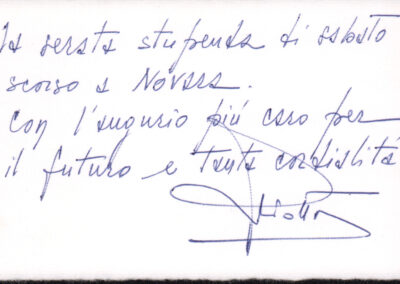 la serata stupenda di sabato
scorso a Novara.
con l'augurio più caro per
il futuro e tanta cordialità